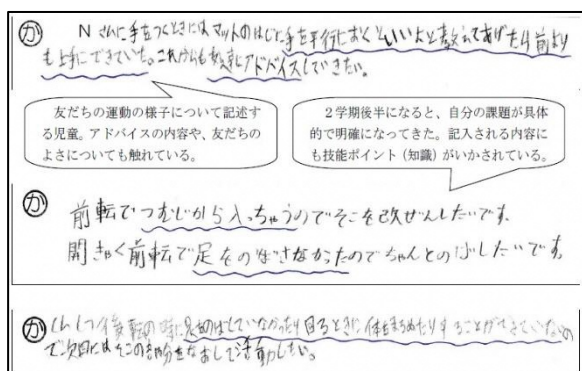 か Nさんに手をつくときにはマットのはじに手を平行におくといいよと教えてあげたら前より
も上手にできていた。これからも友達にアドバイスしていきたい。
友だちの運動の様子について記述す
る児童。アドバイスの内容や、友だちの
よさについても触れている。
2学期後半になると、自分の課題が具体
的で明確になってきた。記入される内容に
も技能ポイント(知識)がいかされている。
か 前転でつむじから入っちゃうのでそこを改ぜんしたいです。
開きゃく前転で足をのばせなかったのでちゃんとのばしたいです。
か しんしつ後転の時に足をのばしていなかったり回るときに体をまるめたりすることができていないの
で次回にはそこの部分をなおして活動したい。